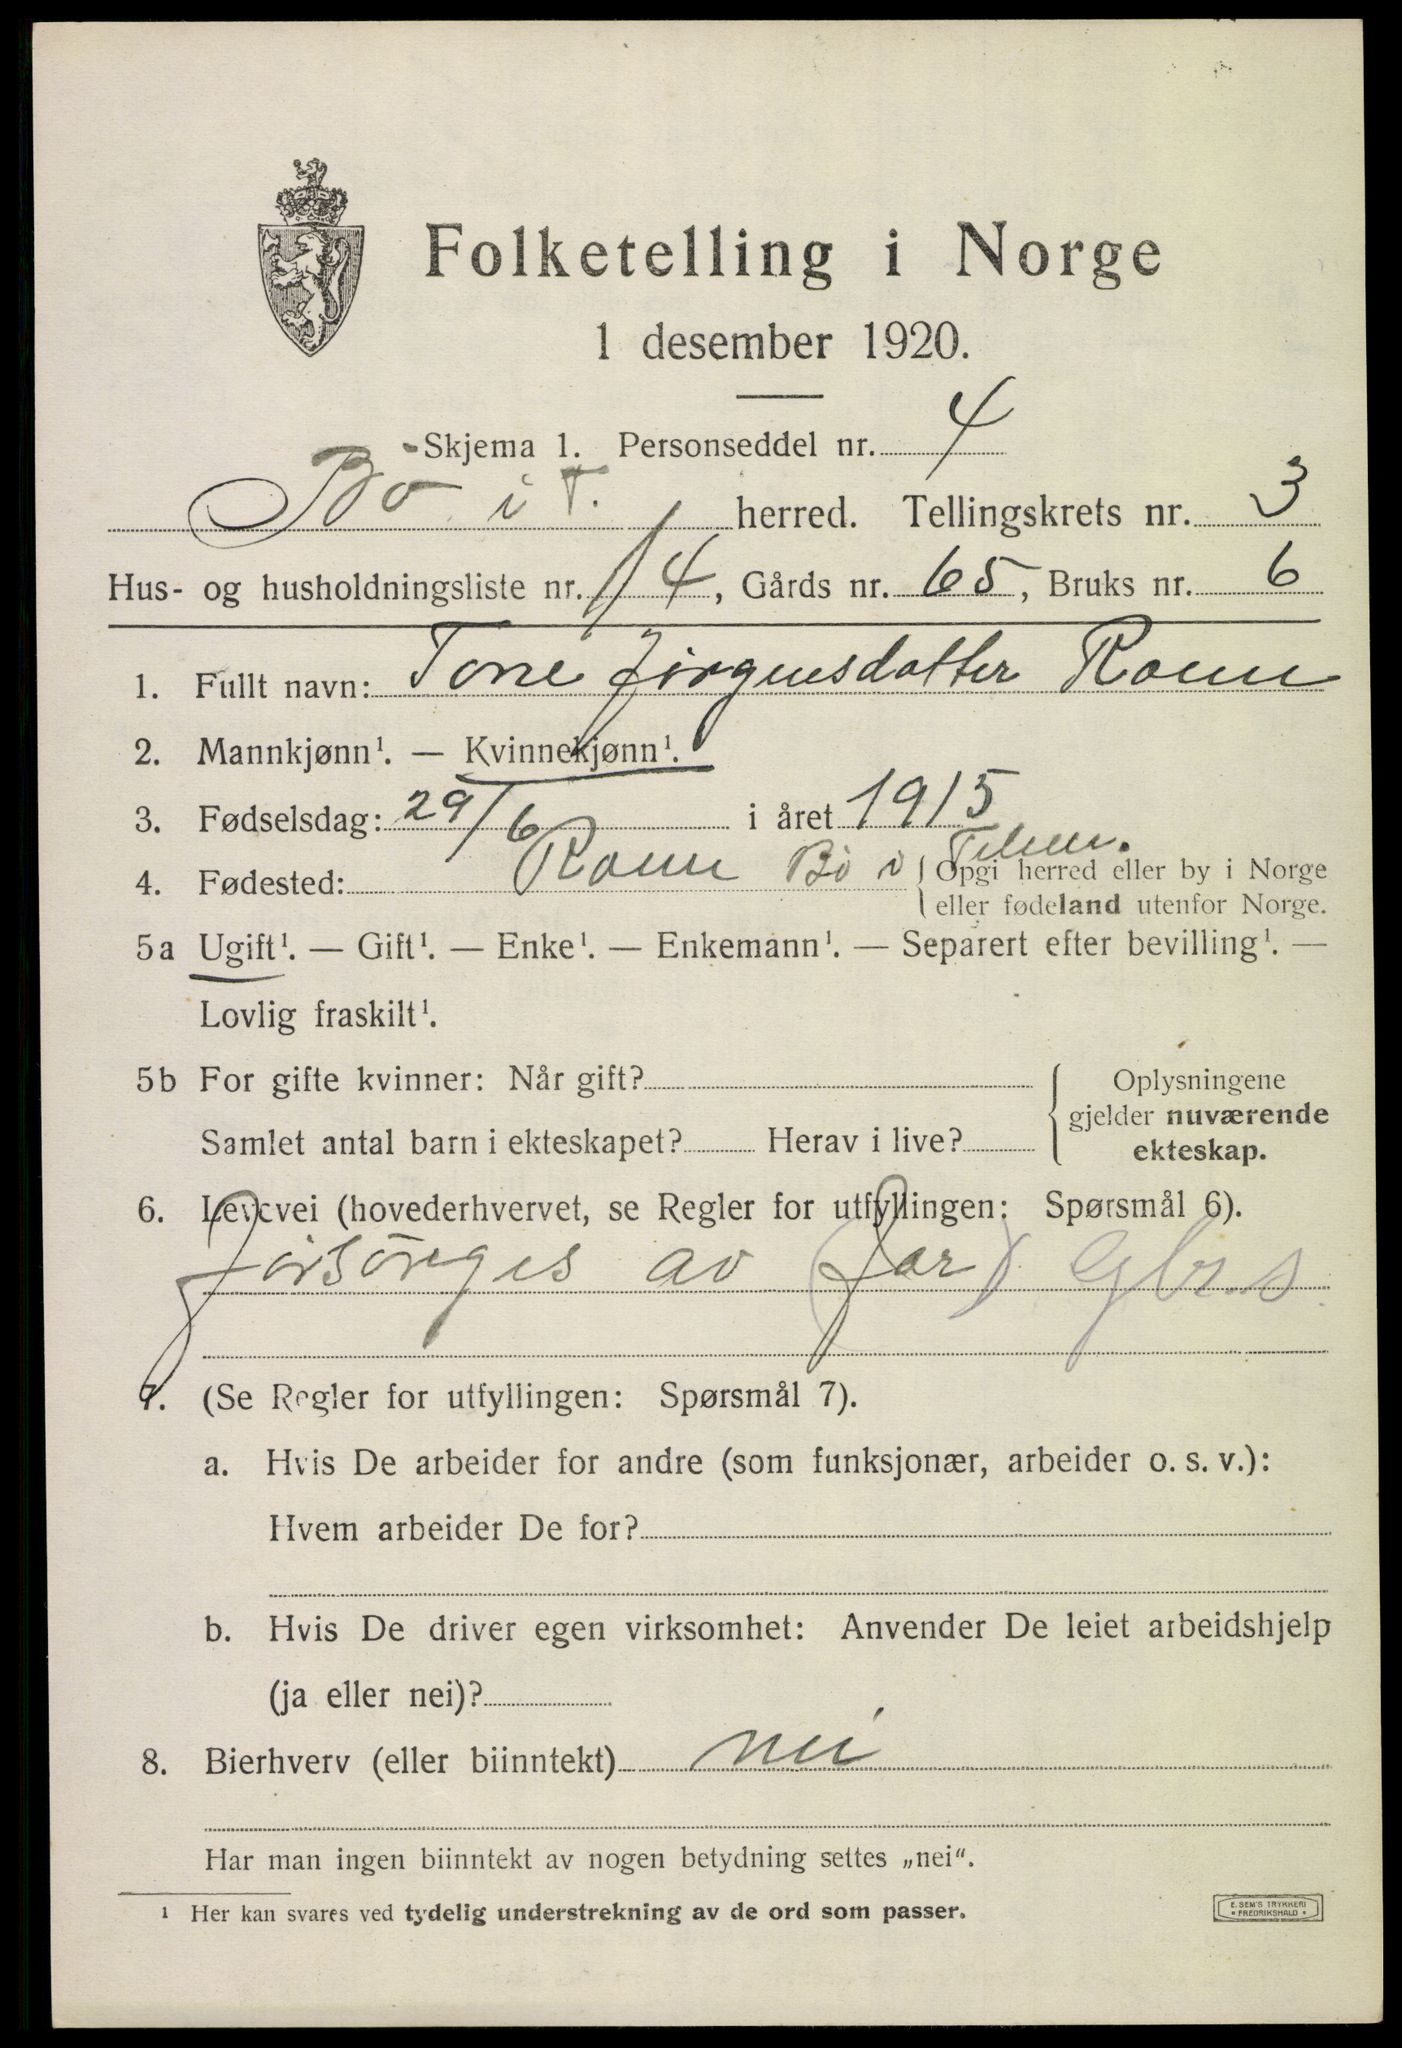 Folketelling i Norge
1 desember 1920.
Skjema 1. Personseddel nr. 4
Bö i T. herred. Tellingskrets nr. 3
Hus- og husholdningsliste nr. 14, Gårds nr. 65, Bruks nr. 6
1. Fullt navn: Tone Jörgensdatter Roen
2. Mannkjønn¹. — Kvinnekjønn¹.
3. Fødselsdag: 29/6 i året 1915
4. Fødested: Roen Bö i Telem. { Opgi herred eller by i Norge
eller fødeland utenfor Norge.
5a Ugift¹. — Gift¹. — Enke¹. — Enkemann¹. — Separert efter bevilling¹. —
Lovlig fraskilt¹.
5b For gifte kvinner: Når gift? { Oplysningene
gjelder nuværende
Samlet antal barn i ekteskapet? Herav i live? ekteskap.
6. Levevei (hovederhvervet, se Regler for utfyllingen: Spørsmål 6).
forsörges av (far) Gbr. s
7. (Se Regler for utfyllingen: Spørsmål 7).
a. Hvis De arbeider for andre (som funksjonær, arbeider o. s. v.):
Hvem arbeider De for?
b. Hvis De driver egen virksomhet: Anvender De leiet arbeidshjelp
(ja eller nei)?
8. Bierhverv (eller biinntekt) nei
Har man ingen biinntekt av nogen betydning settes „nei“.
¹ Her kan svares ved tydelig understrekning av de ord som passer.
E. SEM'S TRYKKERI
• FREDRIKSHALD •